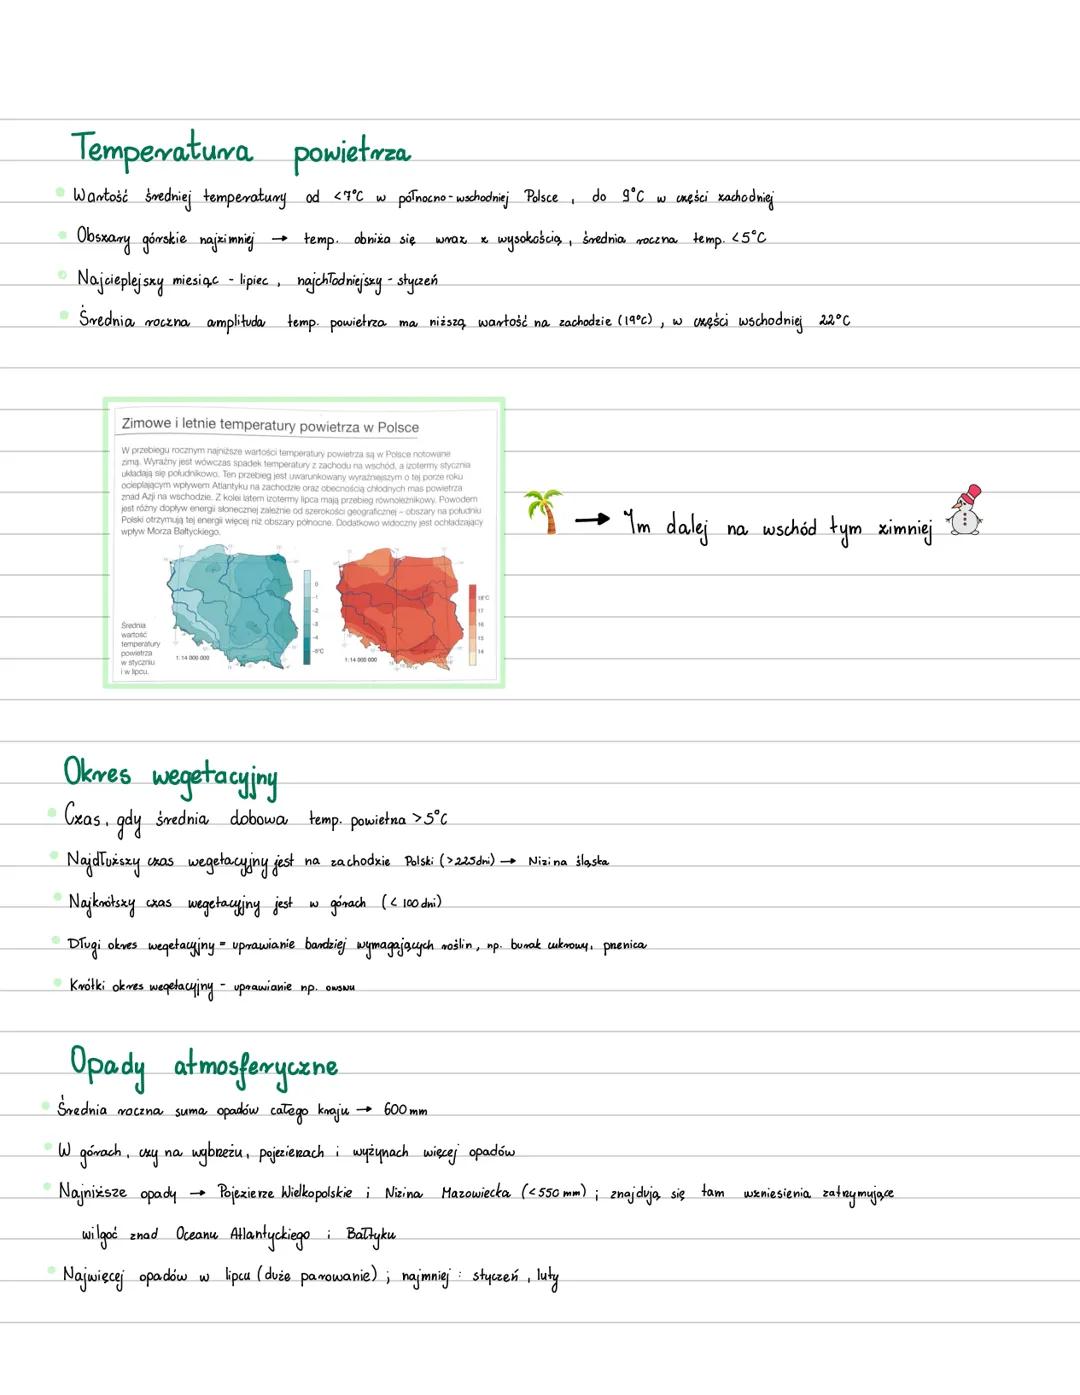 Temperatura powietrza
Wartość średniej temperatury od <7°C w północno-wschodniej Polsce, do 9°C w części zachodniej
Obszary górskie najzimniej → temp. obniża się wraz z wysokością, średnia roczna temp. <5°C
Najcieplejszy miesiąc - lipiec, najchłodniejszy - styczeń
Średnia roczna amplituda temp. powietrza ma niższą wartość na zachodzie (19°C), w części wschodniej 22°C
Zimowe i letnie temperatury powietrza w Polsce
W przebiegu rocznym najniższe wartości temperatury powietrza są w Polsce notowane
zimą. Wyraźny jest wówczas spadek temperatury z zachodu na wschód, a izotermy stycznia
układają się południkowo. Ten przebieg jest uwarunkowany wyraźniejszym o tej porze roku
ocieplającym wpływem Atlantyku na zachodzie oraz obecnością chłodnych mas powietrza
znad Azji na wschodzie. Z kolei latem izotermy lipca mają przebieg równoleżnikowy. Powodem
jest różny dopływ energii słonecznej zależnie od szerokości geograficznej – obszary na południu
Polski otrzymują tej energii więcej niż obszary północne. Dodatkowo widoczny jest ochładzający
wpływ Morza Bałtyckiego.
→ Im dalej na wschód tym zimniej
Średnia
wartość
temperatury
powietrza
w styczniu
i w lipcu.
1: 14 000 000
0
-1
-2
-3
-4
-5°C
1: 14 000 000
18°C
17
16
15
14
Okres wegetacyjny
Czas, gdy średnia dobowa temp. powietrza >5°C
Najdłuższy czas wegetacyjny jest na zachodzie Polski (>225 dni) → Nizina śląska
Najkrótszy czas wegetacyjny jest w górach (< 100 dni)
Długi okres wegetacyjny = uprawianie bardziej wymagających roślin, np. burak cukrowy, pszenica
Krótki okres wegetacyjny - uprawianie np. owswu
Opady atmosferyczne
Średnia roczna suma opadów całego kraju → 600 mm
W górach, czy na wybrzeżu, pojezierzach i wyżynach więcej opadów
Najniższe opady → Pojezierze Wielkopolskie i Nizina Mazowiecka (<550 mm) ; znajdują się tam wzniesienia zatrzymujące
wilgoć znad Oceanu Atlantyckiego i Bałtyku
Najwięcej opadów w lipcu (duże parowanie) ; najmniej : styczeń, luty